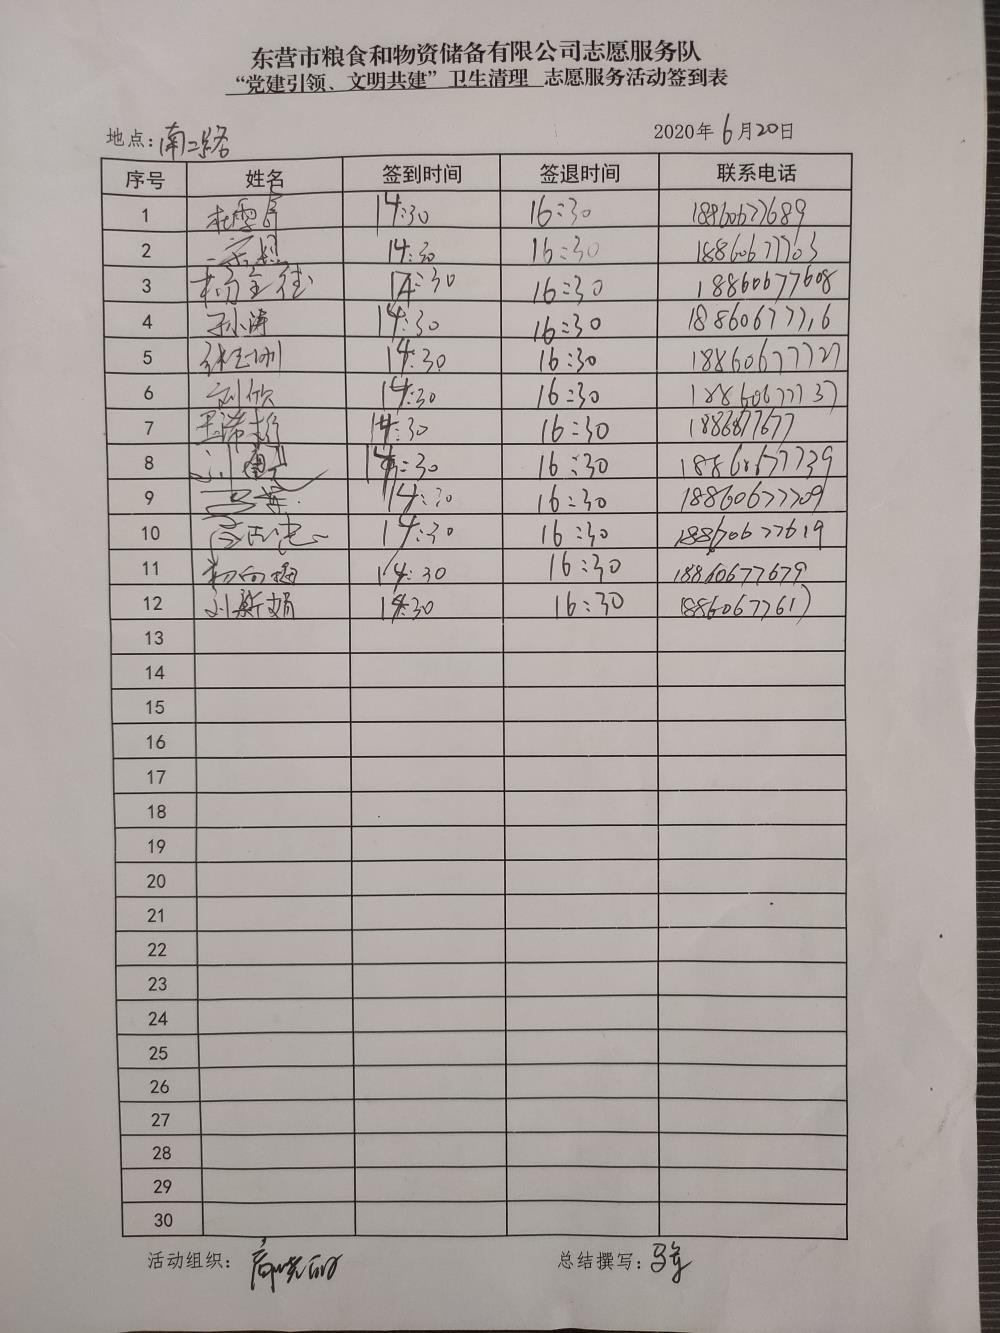 东营市粮食和物资储备有限公司志愿服务队
“党建引领、文明共建”卫生清理 志愿服务活动签到表
地点:南二路 2020年6月20日
序号 姓名 签到时间 签退时间 联系电话
1 14:30 16:30 18860677689
2 14:30 16:30 18860677703
3 14:30 16:30 18860677608
4 孙涛 14:30 16:30
5 14:30 16:30 18860677727
6 刘欣 14:30 16:30 18860677737
7 14:30 16:30
8 14:30 16:30 18860677739
9 14:30 16:30 18860677709
10 14:30 16:30 18860677619
11 杨向梅 14:30 16:30 18860677679
12 刘新娟 14:30 16:30 18860677617
13
14
15
16
17
18
19
20
21
22
23
24
25
26
27
28
29
30
活动组织: 总结撰写: